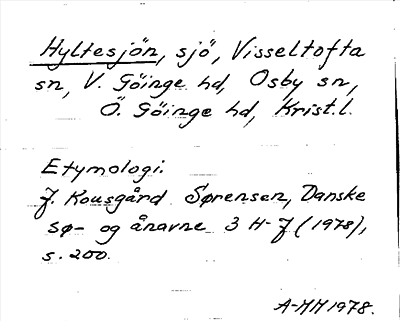 Hyltesjön, sjö, Visseltofta
sn, V. Göinge hd, Osby sn,
Ö. Göinge hd, Krist.l.
Etymologi.
J. Kousgård Sørensen, Danske
sø- og ånavne 3 H-J (1978),
s. 200.
A-MH 1978.